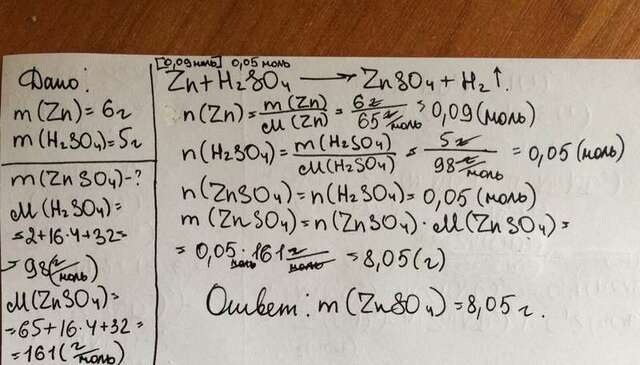 Дано:
m(Zn)=6г
m(H₂SO₄)=5г
m(ZnSO₄)-?
M(H₂SO₄)=
=2+16·4+32=
=98(г/моль)
M(ZnSO₄)=
=65+16·4+32=
=161(г/моль)
[0,09моль] 0,05 моль
Zn+H₂SO₄ → ZnSO₄+H₂↑.
n(Zn)=m(Zn)/M(Zn)=6г/65г/моль=0,09(моль)
n(H₂SO₄)=m(H₂SO₄)/M(H₂SO₄)=5г/98г/моль=0,05(моль)
n(ZnSO₄)=n(H₂SO₄)=0,05(моль)
m(ZnSO₄)=n(ZnSO₄)·M(ZnSO₄)=
=0,05моль·161г/моль=8,05(г)
Ответ: m(ZnSO₄)=8,05г.